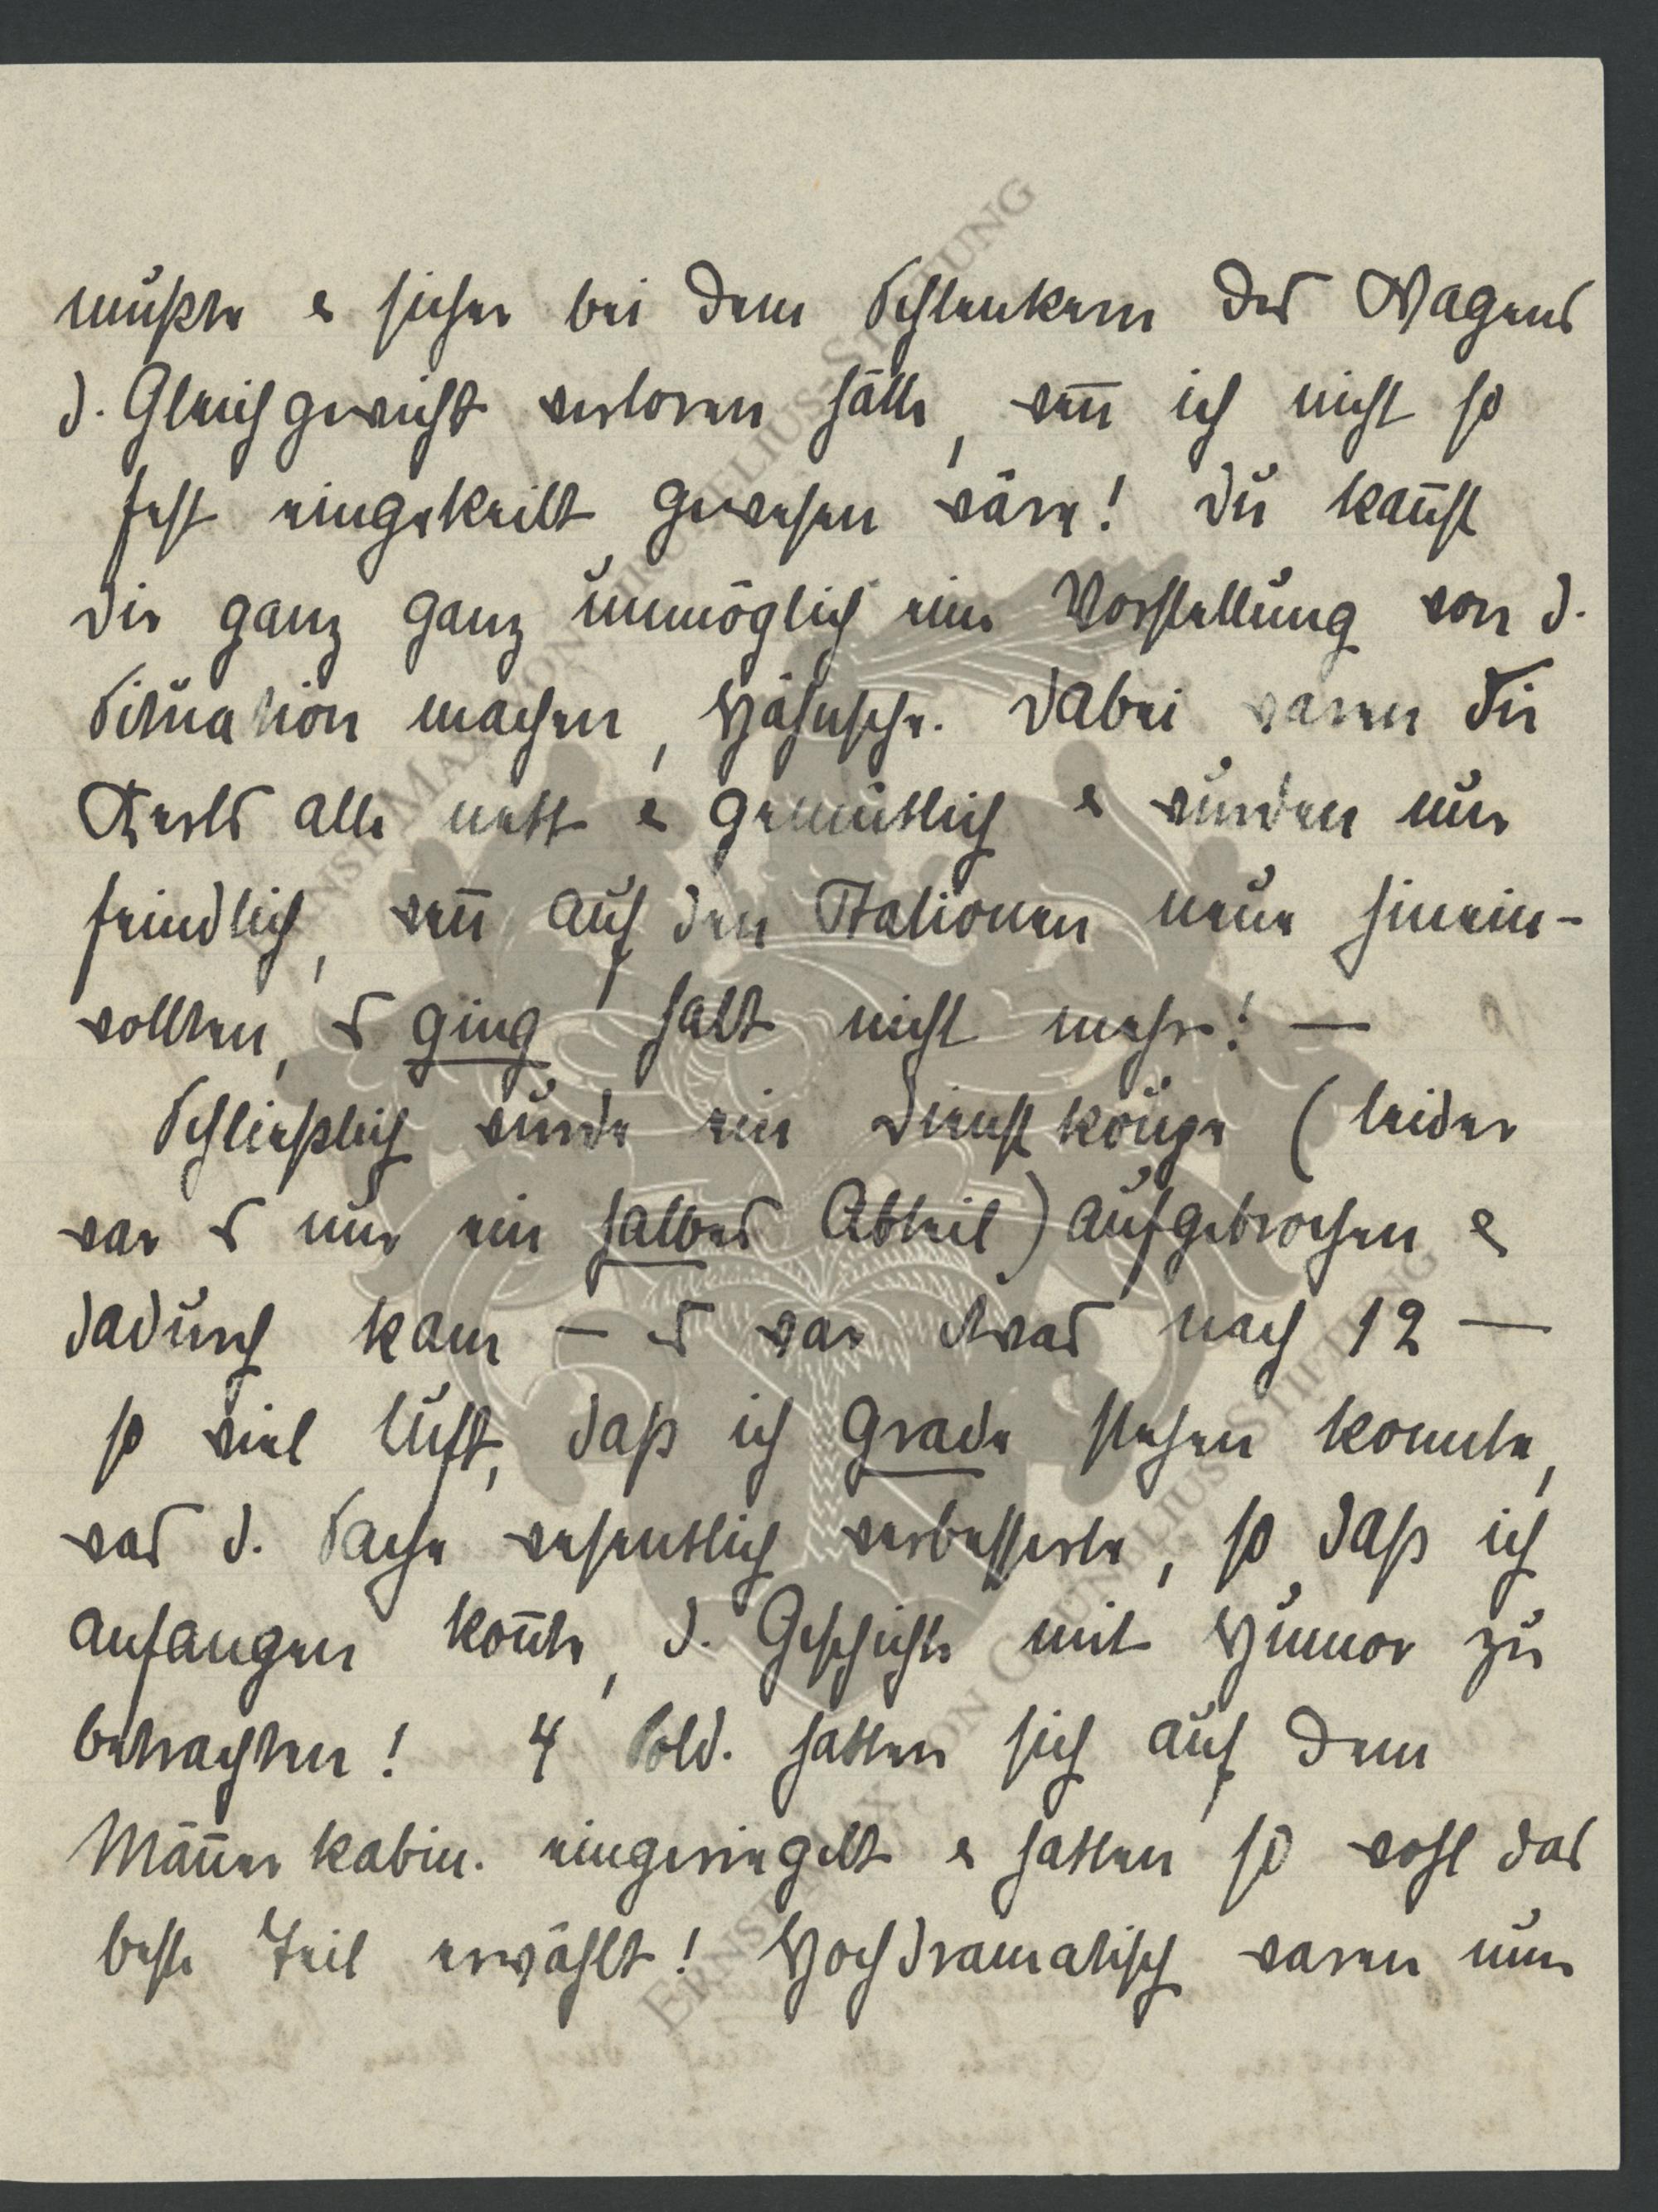 mußte & sicher bei dem Schlenkern des Wagens
d. Gleichgewicht verloren hätte, wen̄ ich nicht so
fest eingekeilt gewesen wäre! Du kan̄st
Dir ganz ganz unmöglich eine Vorstellung von d.
Situation machen, Hähnsche. Dabei waren die
Kerls alle nett & gemütlich & wurden nur
feindlich, wen̄ auf den Stationen neue hinein-
wollten, es ging halt nicht mehr! —
Schließlich wurde ein Dienstkoupe (leider
war es nur ein halbes Abteil) aufgebrochen &
dadurch kam — es war etwas nach 12 —
so viel Luft, daß ich grade stehen konnte,
was d. Sache wesentlich verbesserte, so daß ich
anfangen kon̄te, d. Geschichte mit Humor zu
betrachten! 4 Sold. hatten sich auf dem
Män̄erkabin. eingeriegelt & hatten so wohl das
beste Teil erwählt! Hochdramatisch waren nun
ERNST MAX VON GRUNELIUS-STIFTUNG
ERNST MAX VON GRUNELIUS-STIFTUNG